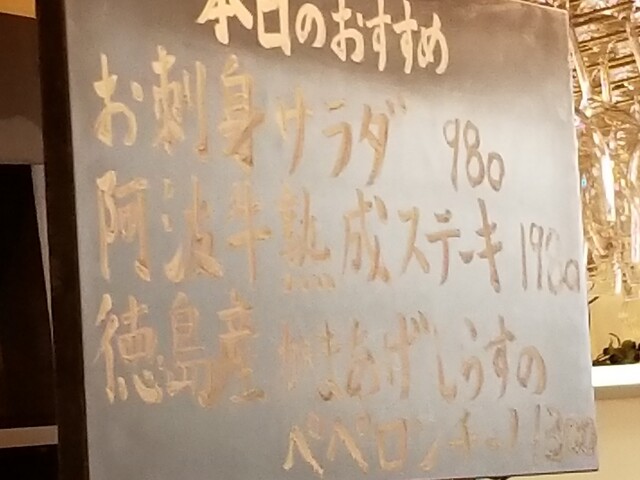 本日のおすすめ
お刺身サラダ 980
阿波牛熟成ステーキ 1980
徳島産かまあげしらすの
ペペロンチーノ 1300